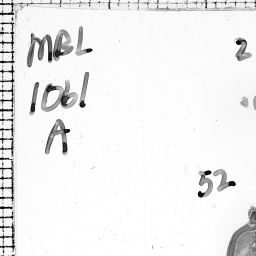 MBL
1061
A
2
52